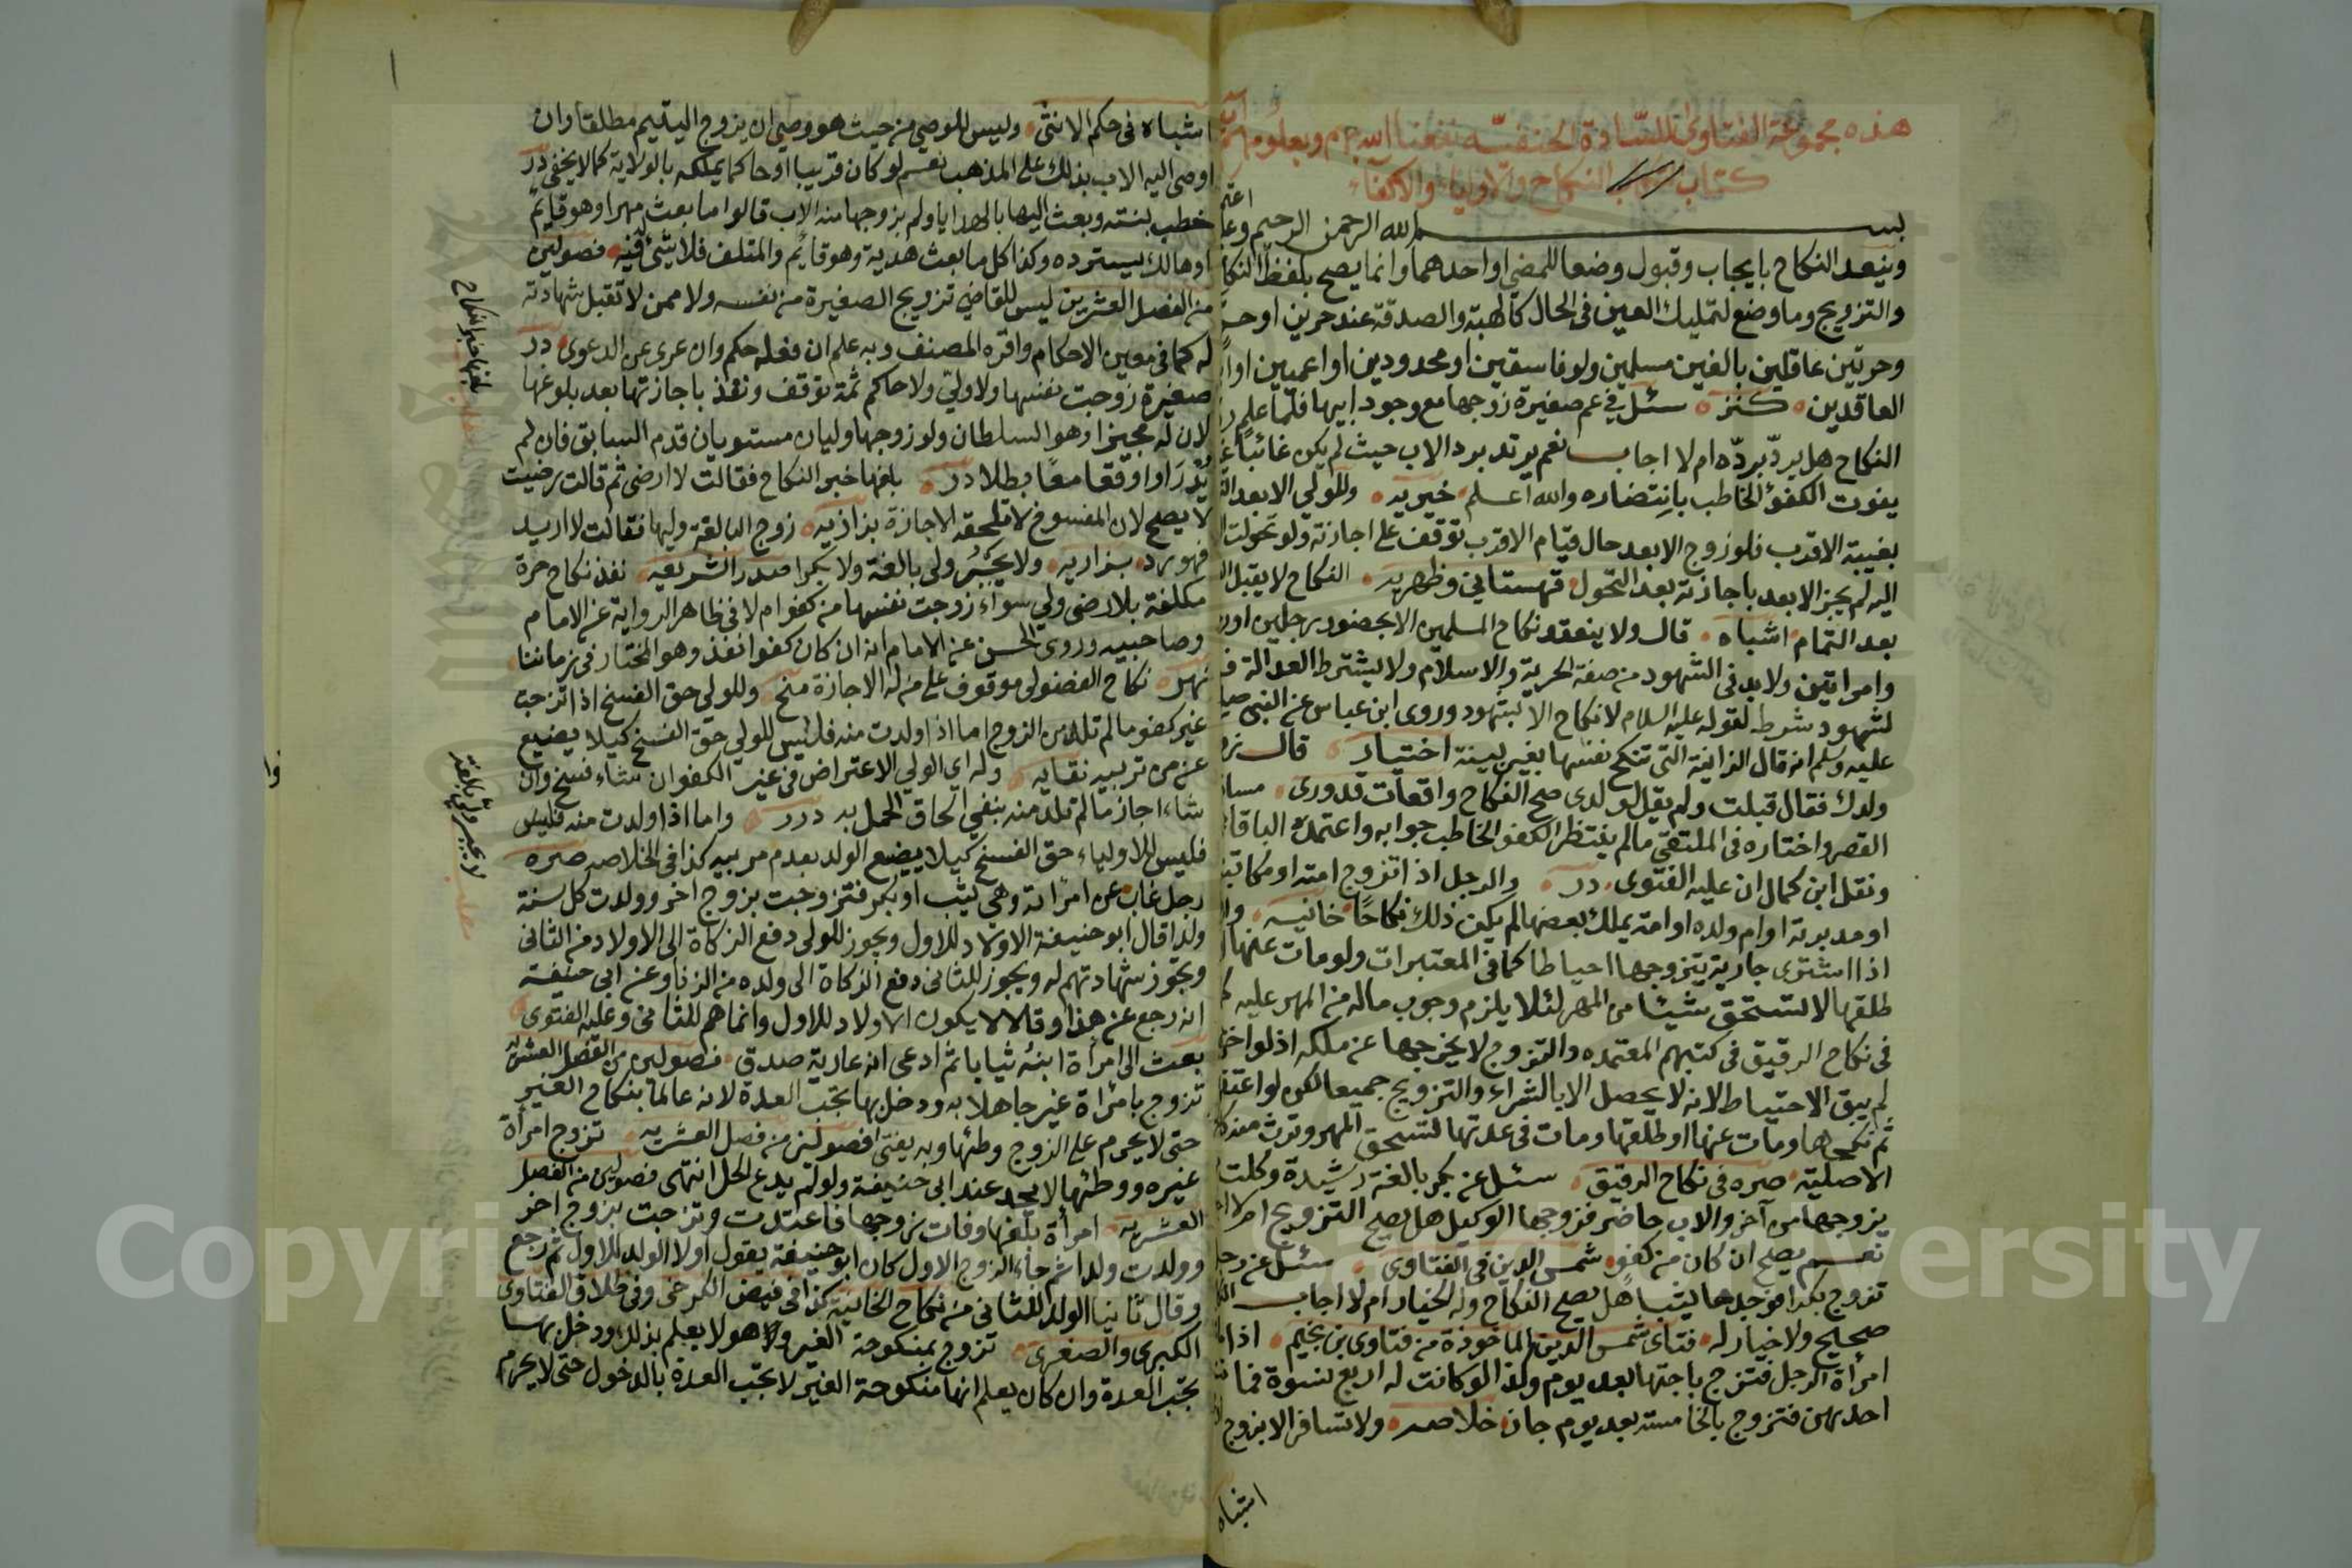 هذه مجموعة الفتاوى للسادة الحنفية نفعنا الله بهم وبعلومهم
كتاب النكاح والاولياء والاكفاء
بسم الله الرحمن الرحيم
وينعقد النكاح بايجاب وقبول وضعا للمضي او احدهما وانما يصح بلفظ النكاح
والتزويج وما وضع لتمليك العين في الحال كالهبة والصدقة عند حرين او حر
وحرتين عاقلين بالغين مسلمين ولو فاسقين او محدودين او اعميين او
العاقدين كنز سئل في عم صغيرة زوجها مع وجود ابيها فلما علم رد
النكاح هل يرد برده ام لا اجاب نعم يرتد برد الاب حيث لم يكن غائبا
يفوت الكفؤ الخاطب بانتضاره والله اعلم خيريه وللولي الابعد
بغيبة الاقرب فلو زوج الابعد حال قيام الاقرب توقف على اجازته ولو تحولت
اليه لم يجز الابعد باجازته بعد التحول قهستاني وظهريه النكاح لا يقبل
بعد التمام اشباه قال ولا ينعقد نكاح المسلمين الا بحضور رجلين او
وامراتين ولا بد في الشهود من صفة الحرية والاسلام ولا يشترط العدالة
لشهود شرط لقوله عليه السلام لا نكاح الا بشهود وروى ابن عباس عن النبي
عليه وسلم انه قال الزانية التي تنكح نفسها بغير بينة اختيار قال
ولدك فقال قبلت ولم يقل لولدي صح النكاح واقعات قدوري
القصر واختاره في الملتقى ما لم ينتظر الكفو الخاطب جوابه واعتمده الباقاني
ونقل ابن كمال ان عليه الفتوى در والرجل اذا تزوج امته او مكاتبته
او مدبرته او ام ولده او امة يملك بعضها لم يكن ذلك نكاحا خانيه
اذا اشترى جارية يتزوجها احتياطا كما في المعتبرات ولو مات عنها او
طلقها لا تستحق شيئا من المهر لئلا يلزم وجوب ماله من المهر عليه
في نكاح الرقيق في كتبهم المعتمده والتزوج لا يخرجها عن ملكه اذ لو
لم يبق الاحتياط لانه لا يحصل الا بالشراء والتزويج جميعا لكن لو اعتقها
ثم نكحها ومات عنها او طلقها ومات في عدتها تستحق المهر وترث
الاصلية صره في نكاح الرقيق سئل عن بكر بالغة رشيدة وكلت
يزوجها من آخر والاب حاضر فزوجها الوكيل هل يصح التزويج ام لا
نعم يصح ان كان من كفو شمس الدين في الفتاوى سئل عن رجل
تزوج بكرا فوجدها ثيبا هل يصح النكاح وله الخيار ام لا اجاب
صحيح ولا خيار له فتاى شمس الدين الماخوذة من فتاوى بن نجيم اذا
امرأة الرجل فتزوج باختها بعد يوم ولذا لو كانت له اربع نسوة
احديهن فتزوج بالخامسة بعد يوم جاز خلاصه ولا تسافر الا بزوج
اشباه
اشباه في حكم الانثى وليس للوصي من حيث هو وصي ان يزوج اليتيم مطلقا وان
اوصى اليه الاب بذلك على المذهب نعم لو كان قريبا او حاكما يملكه بالولاية كما لا يخفى در
خطب بنته وبعث اليها بالهدايا ولم يزوجها منه الاب قالوا ما بعث مهرا وهو قايم
او هالك يسترده وكذا كل ما بعث هدية وهو قايم والمتلف فلا شيء فيه فصولين
من الفصل العشرين ليس للقاضي تزويج الصغيرة من نفسه ولا ممن لا تقبل شهادته
له كما في معين الاحكام واقره المصنف وبه علم ان فعله حكم وان عرى عن الدعوى در
صغيرة زوجت نفسها ولا ولي ولا حاكم ثمة توقف ونفذ باجازتها بعد بلوغها
لان له مجيزا وهو السلطان ولو زوجها وليان مستويان قدم السابق فان لم
يدر او وقعا معا بطلا در بلغها خبر النكاح فقالت لا ارضى ثم قالت رضيت
لا يصح لان المفسوخ لا تلحقه الاجازة بزازيه زوج البالغة وليها فقالت لا اريد
فهو رد بزازيه ولا يجبر ولي بالغة ولا بكرا صدر الشريعيه نفذ نكاح حرة
مكلفة بلا رضى ولي سواء زوجت نفسها من كفو ام لا في ظاهر الرواية عن الامام
وصاحبيه وروى الحسن عن الامام انه ان كان كفوا نفذ وهو المختار في زماننا
نهر نكاح الفضولي موقوف على من له الاجازة منح وللولي حق الفسخ اذا تزوجت
غير كفو ما لم تلد من الزوج اما اذا ولدت منه فليس للولي حق الفسخ كيلا يضيع
عن من تربيه نقايه وله اي الولي الاعتراض في غير الكفو ان شاء فسخ وان
شاء اجاز ما لم تلد منه ينفي الحاق الحمل به درر واما اذا ولدت منه فليس
فليس للاولياء حق الفسخ كيلا يضيع الولد بعدم مربيه كذا في الخلاصه صره
رجل غاب عن امراته وهي ثيب او بكر فتزوجت بزوج اخر وولدت كل سنة
ولدا قال ابو حنيفة الاولاد للاول ويجوز للولي دفع الزكاة الى الاولاد من الثاني
وتجوز شهادتهم له ويجوز للثاني دفع الزكاة الى ولده من الزنا وعن ابي حنيفة
انه رجع عن هذا وقال لا يكون الاولاد للاول وانما هم للثاني وعليه الفتوى
بعث الى امرأة ابنه ثيابا ثم ادعى انه عارية صدق فصولين من الفصل العشرين
تزوج بامرأة غير جاهلا به ودخل بها تجب العدة لا انه عالما بنكاح الغير
حتى لا يحرم على الزوج وطئها وبه يفتى افصولين من فصل العشريه تزوج امرأة
غيره ووطئها لا يحد عند ابي حنيفة ولو لم يدع الحل انتهى فصولين من الفصل
العشريه امرأة بلغها وفات زوجها فاعتدت وتزوجت بزوج اخر
وولدت ولدا ثم جاء الزوج الاول كان ابو حنيفة يقول اولا الولد للاول ثم رجع
وقال ثانيا الولد للثاني من نكاح الخانية كذا في فيض الكرخي وفي طلاق الفتاوى
الكبرى والصغرى تزوج بمنكوحة الغير وهو لا يعلم بذلك ودخل بها
تجب العدة وان كان يعلم انها منكوحة الغير لا تجب العدة بالدخول حتى لا يحرم
بلغها خبر النكاح
لا يجبر ولي بالغة
مطلب
Copyri
Saud University